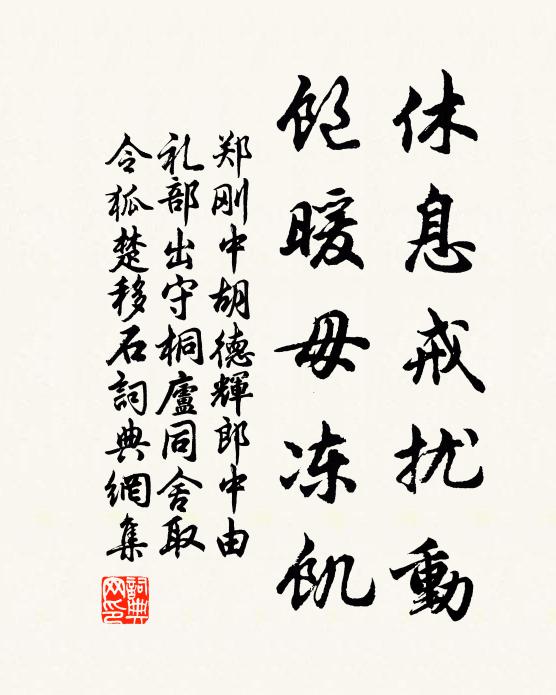 休息戒扰動
饱暖毋冻饥
郑刚中胡德輝郎中由
礼部出守桐廬同舍取
令狐楚移石詞典網集
詞典网印